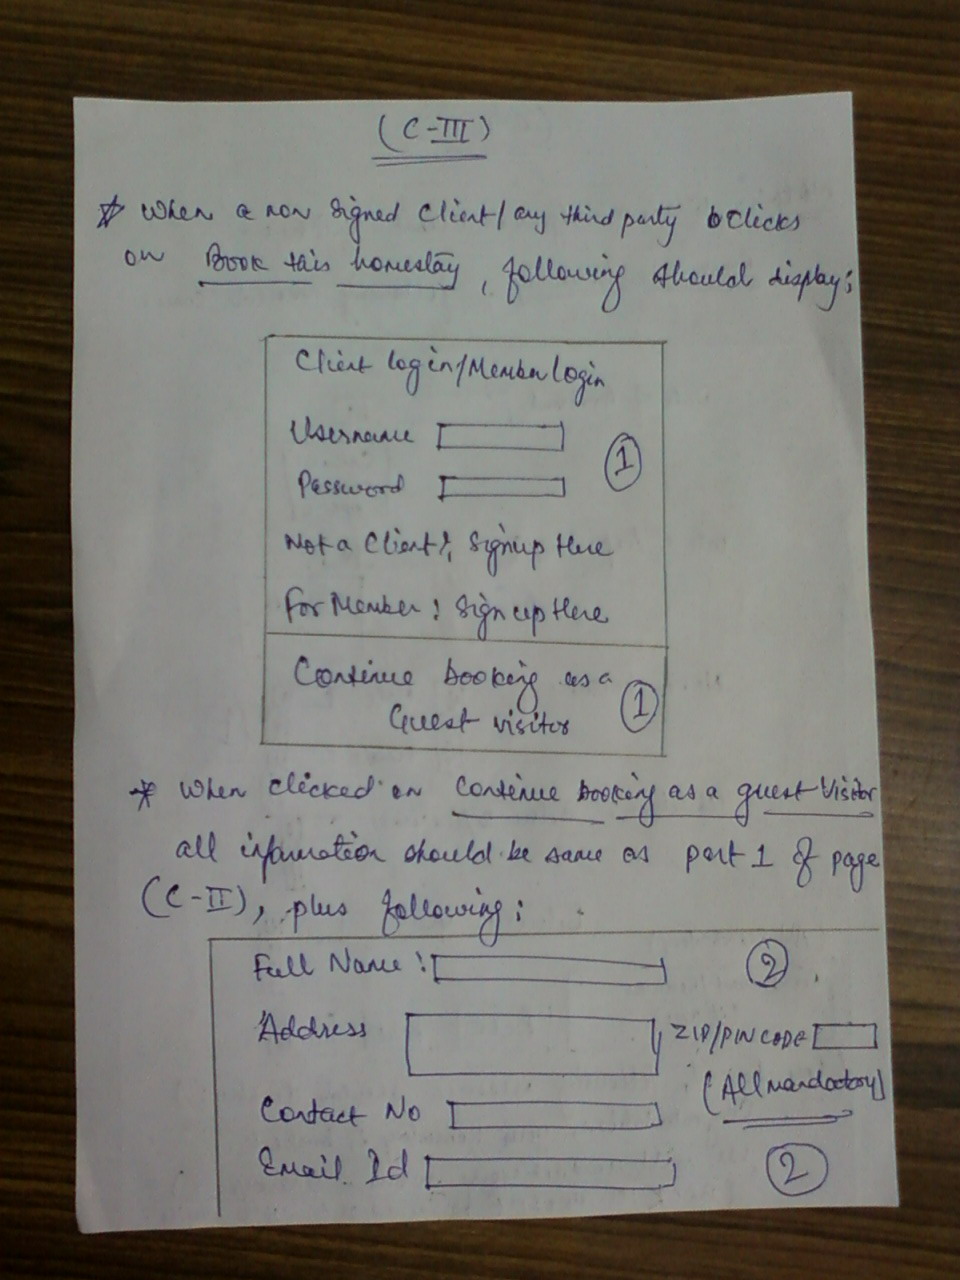 (C-III)
* When a non signed client/any third party clicks
on Book this homestay, following should display;
Client login/Member login
Username
1
Password
Not a Client?, Signup Here
For Member: Sign up Here
Continue booking as a
1
Guest visitor
* When clicked on Continue booking as a guest Visitor
all information should be same as part 1 of page
(C-II), plus following;
Full Name :
2
Address
ZIP/PIN CODE
(All mandatory)
Contact No
Email Id
2